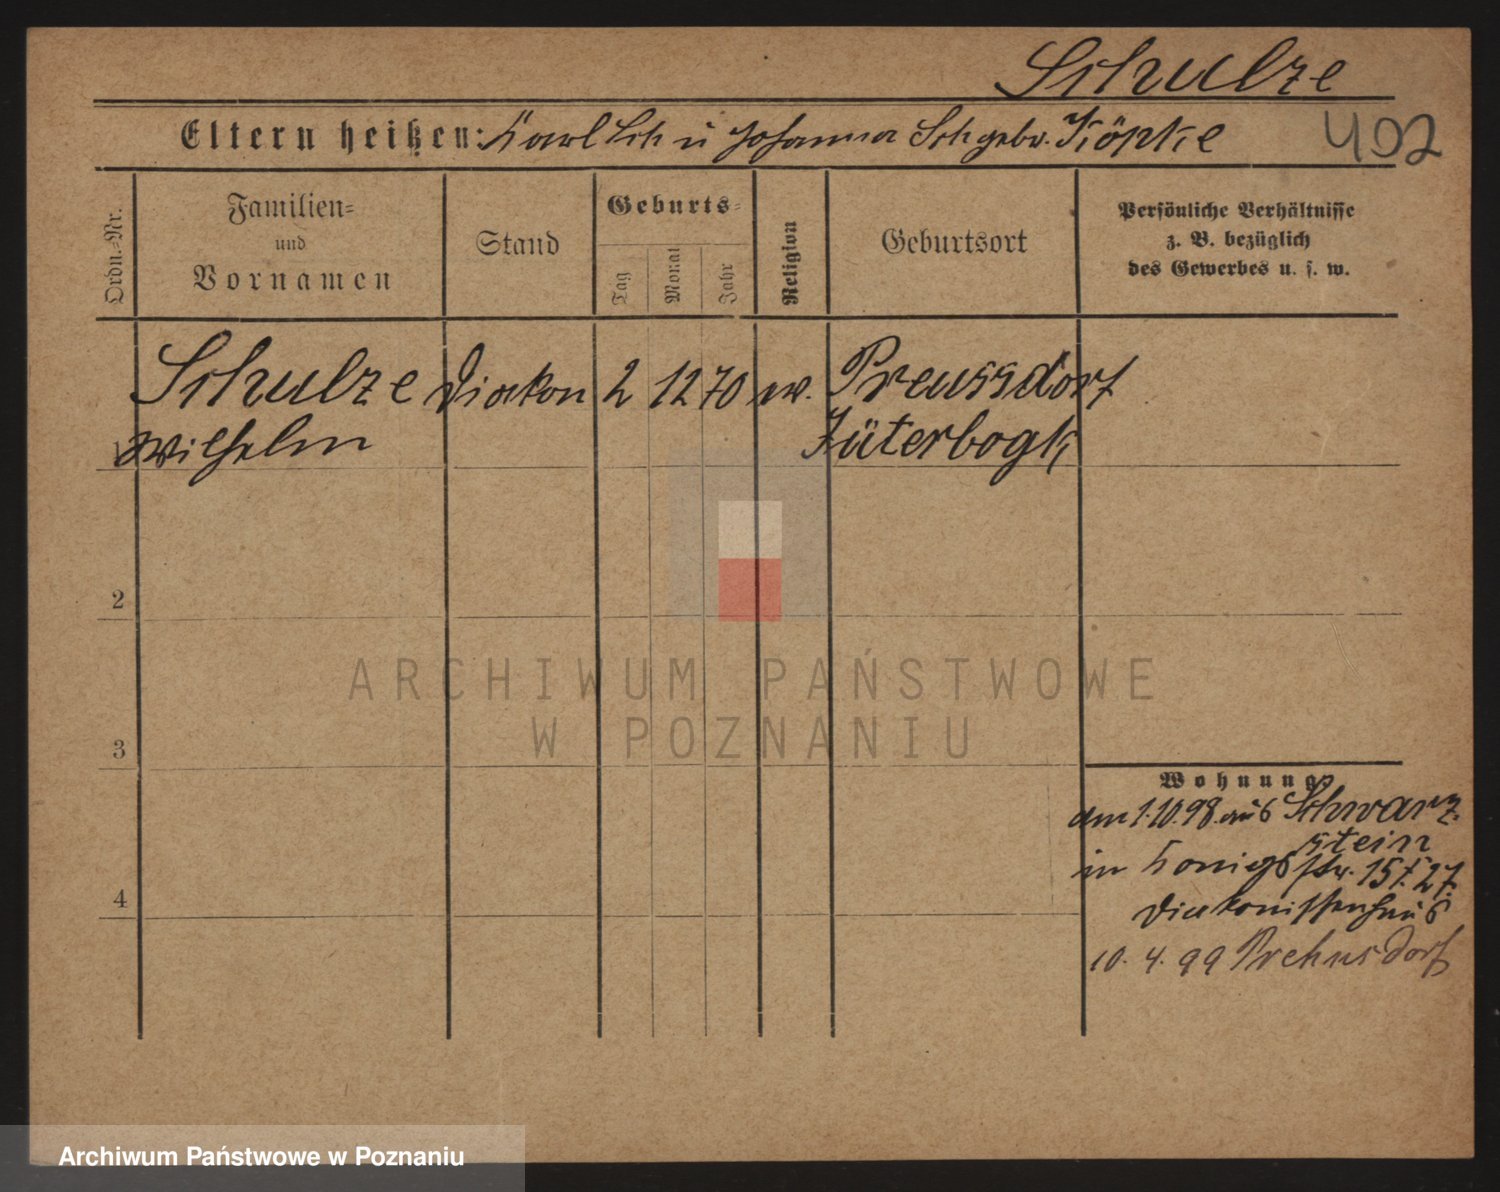 Schulze
Eltern heißen: Karl Sch u Johanna Sch gebr. Köpke
492
Ordn.-Nr.
Familien-
und
Vornamen
Stand
Geburts-
Tag
Monat
Jahr
Religion
Geburtsort
Persönliche Verhältnisse
z. B. bezüglich
des Gewerbes u. s. w.
Schulze Diakon 2 12 70 ev. Preussdorf
1 Wilhelm Jüterbogk
2
3
4
Wohnung
am 1.10.98. aus Schwarz-
stein
in Königs str. 15 f. 27.
Diakonissenhaus
10. 4. 99 Prehnsdorf
ARCHIWUM PAŃSTWOWE
W POZNANIU
Archiwum Państwowe w Poznaniu